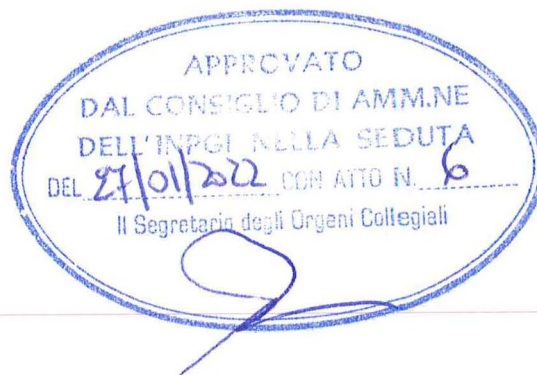 APPROVATO
DAL CONSIGLIO DI AMM.NE
DELL'INPGI NELLA SEDUTA
DEL 27/01/2022 CON ATTO N. 6
Il Segretario degli Organi Collegiali